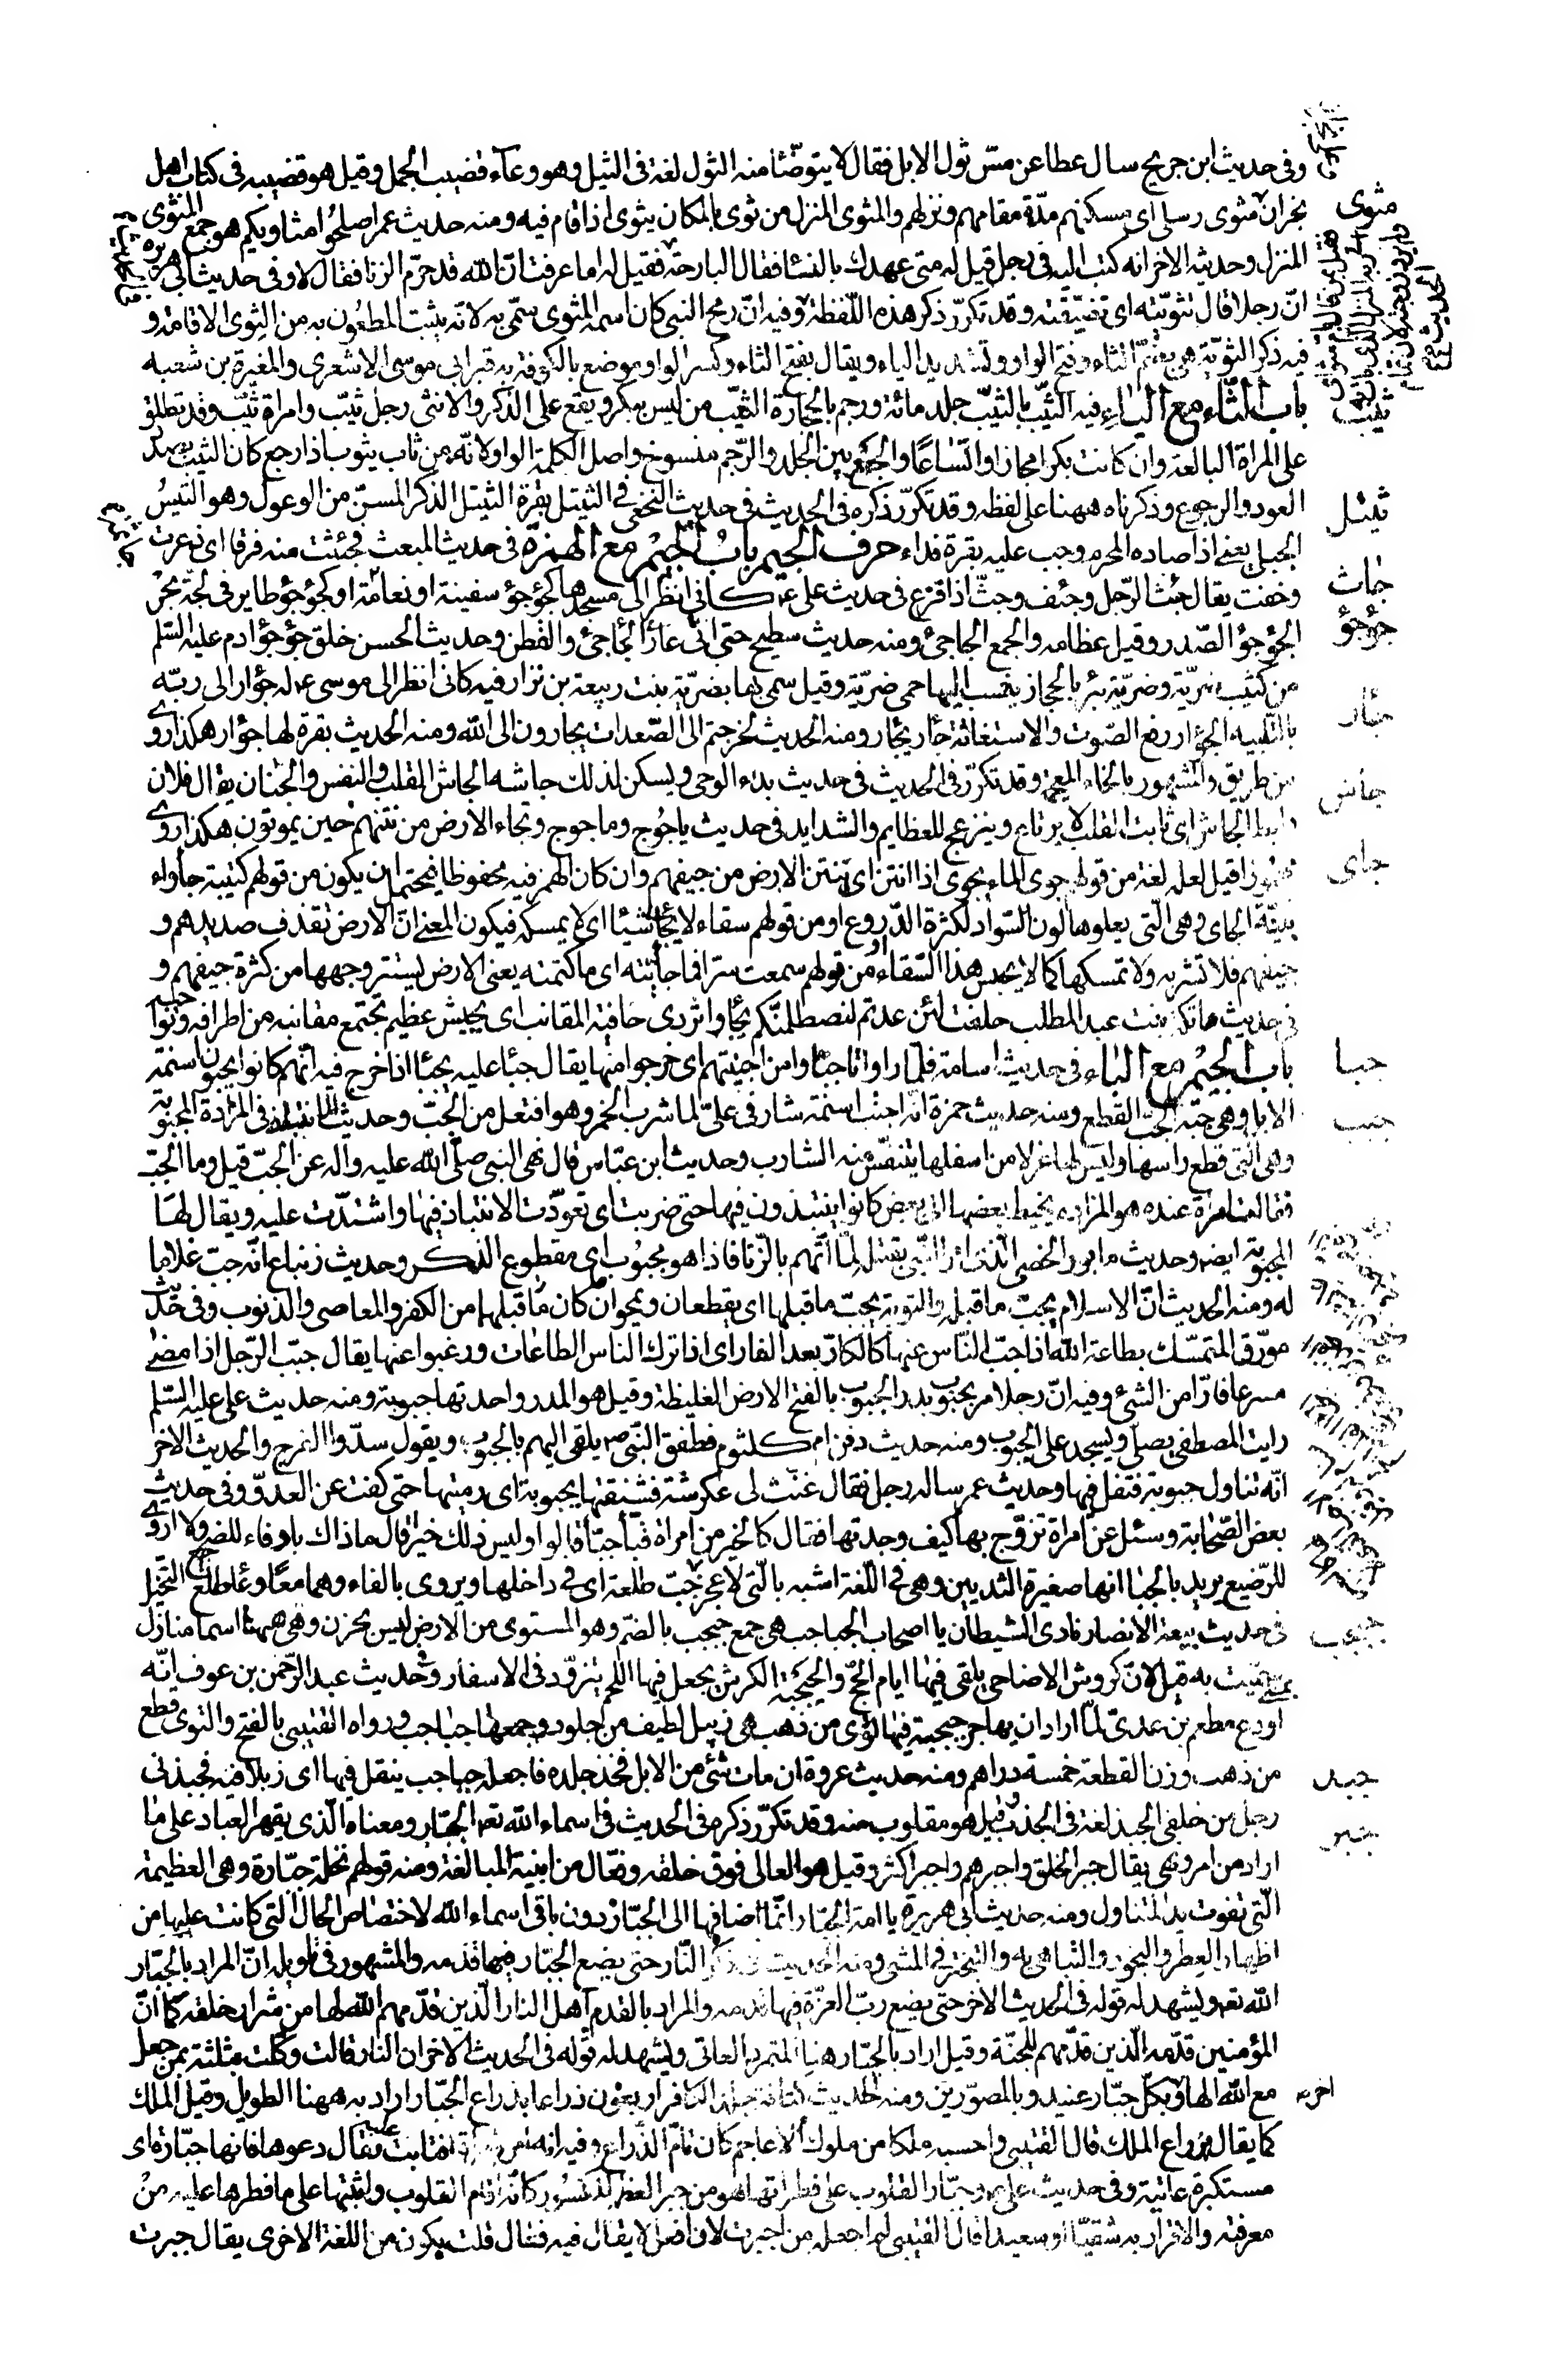 وفى حديث ابن جريج سال عطا عن مسّ ثول الابل فقال لا يتوضّأ منه الثول لغة فى الثيل وهو وعآء قضيب الجمل وقيل هو قضيبه فى كتاب اهل
مثوى
نجران مثوى رسلى اى مسكنهم مدّة مقامهم ونزلهم والمثوى المنزل من ثوى بالمكان يثوى اذا قام فيه ومنه حديث عمر اصلحوا مثاويكم هو جمع المثوى
المنزل وحديثه الاخر انه كتب اليه فى رجل قيل له متى عهدك بالنسا فقال البارحة فقيل له اما عرفت انّ الله قد حرّم الزنا فقال لا وفى حديث ابى هريرة
انّ رجلا قال تثوّيته اى تضيّفته وقد تكرّر ذكر هذه اللّفظة وفيه انّ رمح النبى كان اسمه المثوى سمّى به لانه يثبت المطعون به من الثوى الاقامة و
فيه ذكر الثويّة هى بضمّ الثاء وفتح الواو وتشديد الياء ويقال بفتح الثاء وكسر الواو موضع بالكوفة به قبر ابى موسى الاشعرى والمغيرة بن شعبه
ثيب
باب الثّاء مع الياء فيه الثيّب بالثيّب جلد مائة ورجم بالحجارة الثيّب من ليس ببكر ويقع على الذكر والانثى رجل ثيّب وامراة ثيّب وقد تطلق
على المراة البالغة وان كانت بكرا مجازا واتّساعًا والجمع بين الجلد والرّجم منسوخ واصل الكلمة الواو لانّه من ثاب يثوب اذا رجع كان الثيّب بصدد
ثيتل
العود والرجوع وذكرناه ههنا على لفظه وقد تكرّر ذكره فى الحديث فى حديث النخعى فى الثيتل بقرة الثيتل الذكر المسنّ من الوعول وهو التيس
الجبلى يعنى اذا صاده المحرم وجب عليه بقرة فداء حرف الجيم باب الجيم مع الهمزة فى حديث المبعث فجئثت منه فرقا اى ذعرت
جاث
وخفت يقال جئث الرّجل وجئف وجثّ اذا فزع فى حديث على ع كانى انظر الى مسجدها كجؤجؤ سفينة او نعامة او كجؤجؤ طاير فى لجّة بحر
جؤجؤ
الجؤجؤ الصّدر وقيل عظامه والجمع الجاجئ ومنه حديث سطيح حتى اتى عارى الجاجئ والقطن وحديث الحسن خلق جؤجؤ ادم عليه السّلم
من كثيب ضريّة وضريّة بئر بالحجاز ينسب اليها حمى ضريّة وقيل سمى بها بضريّة بنت ربيعة بن نزار فيه كانى انظر الى موسى ع له جؤار الى ربّه
جأر
بالتلبيه الجؤار رفع الصّوت والاستغاثة جأر يجأر ومنه الحديث لخرجتم الى الصّعدات يجارون الى الله ومنه الحديث بقرة لها جؤار هكذا روى
من طريق والمشهور بالخاء المعجمة وقد تكرّر فى الحديث فى حديث بدء الوحى ويسكن لذلك جاشه الجاش القلب والنفس والجنان يقال فلان
جاش
رابط الجاش اى ثابت القلب لا يرتاع وينزعج للعظايم والشدايد فى حديث ياجوج وماجوج وتجاء الارض من نتنهم حين يموتون هكذا روى
جاى
مهموزا قيل لعله لغة من قولهم جوى الماء يجوى اذا انتن اى تنتن الارض من جيفهم وان كان الهمز فيه محفوظا فيحتمل ان يكون من قولهم كتيبة جأواء
بيّنة الجاى وهى الّتى يعلوها لون السّواد لكثرة الدّروع او من قولهم سقاء لا يجأى شيئا اى لا يمسكه فيكون المعنى انّ الارض تقذف صديدهم و
جيفهم فلا تشربه ولا تمسكها كما لا يحبس هذا السّقاء او من قولهم سمعت سترا فما جأيته اى ما كتمته يعنى الارض يستتر وجهها من كثرة جيفهم و
فى حديث عاتكة بنت عبد المطلب حلفت لئن عدتم لنصطلمنّكم بجأواء تردى حافتيه المقانب اى بجيش عظيم تجتمع مقانبه من اطرافه ونواحيه
جبا
باب الجيم مع الباء فى حديث اسامة فلمّا راوانا جبأوا من اخبيتهم اى خرجوا منها يقال جبأ عليه يجبأ اذا خرج فيه انّهم كانوا يجبّون اسنمة
جبب
الابل وهى حيّة الجبّ القطع ومنه حديث حمزة انّه اجتبّ اسنمة شارفى علىّ لما شرب الخمر وهو افتعل من الجبّ وحديث الانتباذ فى المزادة المجبوبة
وهى الّتى قطع راسها وليس لها عزلا من اسفلها يتنفّس منه الشارب وحديث ابن عبّاس قال نهى النبى صلّى الله عليه واله عن الجبّ قيل وما الجبّ
فقالت امراة عنده هو المزادة يخيط بعضها الى بعض كانوا ينتبذون فيها حتى ضريت اى تعوّدت الانتباذ فيها واشتدّت عليه ويقال لها
المجبوبة ايضا وحديث مابور الخصى الّذى امر النّبى بقتله لمّا اتّهم بالزّنا فاذا هو مجبوب اى مقطوع الذّكر وحديث زنباع انّه جبّ غلاما
له ومنه الحديث انّ الاسلام يجبّ ما قبله والتوبة يجبّ ما قبلها اى يقطعان ويمحوان ما كان قبلهما من الكفر والمعاصى والذنوب وفى حديث
مورّق المتمسّك بطاعة الله اذا جبّب النّاس عنها كالكارّ بعد الفار اى اذا ترك الناس الطاعات ورغبوا عنها يقال جبّب الرّجل اذا مضى
مسرعا فارّا من الشىء وفيه انّ رجلا مر بجبوب بدر الجبوب بالفتح الارض الغليظة وقيل هو المدر واحدتها جبوبة ومنه حديث على عليه السّلم
رايت المصطفى يصلّى ويسجد على الجبوب ومنه حديث دفن ام كلثوم فطفق النّبى ص يلقى اليهم بالجبوب ويقول سدّوا الفرج والحديث الاخر
انّه تناول جبوبة فتفل فيها وحديث عمر ساله رجل فقال عنّت لى عكرشة فشنقتها بجبوبة اى رميتها حتى كفت عن العدو وفى حديث
بعض الصّحابة وسئل عن امراة تزوّج بها كيف وجدتها فقال كالخير من امراة قبّاء جبّاء قالوا اوليس ذلك خيرا قال ما ذاك بادفاء للضجيع ولا اروى
للرّضيع يريد بالجبّاء انها صغيرة الثديين وهى فى اللّغة اشبه بالّتى لا عجز لها جبّ طلعة اى فى داخلها ويروى بالفاء وهما معًا وعاء طلع النّخيل
جبجب
فى حديث بيعة الانصار نادى الشيطان يا اصحاب الجباجب هى جمع جبجب بالضمّ وهو المستوى من الارض ليس بحزن وهى ههنا اسما منازل
بمنى سمّيت به قيل لانّ كروش الاضاحى يلقى فيها ايام الحجّ والجبجبة الكرش يجعل فيها اللحم يتزوّد فى الاسفار وفى حديث عبد الرّحمن بن عوف انّه
اودع مطعم بن عدىّ لمّا اراد ان يهاجر جبجبة فيها نوى من ذهب هى زبيل لطيف من جلود وجمعها جباجب ورواه القتيبى بالفتح والنوى قطع
من ذهب وزن القطعة خمسة دراهم ومنه حديث عروة ان مات شىء من الابل فخذ جلده فاجعله جباجب ينقل فيها اى زبلا فيه فجبذنى
جبذ
رجل من خلفى الجبذ لغة فى الجذب وقيل هو مقلوب منه وقد تكرّر ذكره فى الحديث فى اسماء الله تعه الجبّار ومعناه الّذى يقهر العباد على ما
جبر
اراد من امر ونهى يقال جبر الخلق واجبرهم واجبر اكثر وقيل هو العالى فوق خلقه وفعّال من ابنية المبالغة ومنه قولهم نخلة جبّارة وهى العظيمة
الّتى تفوت يد المتناول ومنه حديث ابى هريرة يا امة الجبّار انّما اضافها الى الجبّار دون باقى اسماء الله لاختصاص الحال الّتى كانت عليها من
اظهار العطر والبخور والتباهى به والتبختر فى المشى ومنه الحديث فى ذكر النّار حتى يضع الجبّار فيها قدمه والمشهور فى تاويله انّ المراد بالجبّار
الله تعه ويشهد له قوله فى الحديث الاخر حتى يضع ربّ العزّة فيها قدمه والمراد بالقدم اهل النار الّذين قدّمهم الله لها من شرار خلقه كما انّ
المؤمنين قدمه الّذين قدّمهم للجنّة وقيل اراد بالجبّار هنا المتمرد العاتى ويشهد له قوله فى الحديث الاخر ان النار قالت وكّلت بثلثة بمن جعل
مع الله الها اخر وبكلّ جبّار عنيد وبالمصوّرين ومنه الحديث كثافة جلد الكافر اربعون ذراعا بذراع الجبّار اراد به ههنا الطويل وقيل الملك
كما يقال بذراع الملك قال القتيبى واحسبه ملكا من ملوك الاعاجم كان تامّ الذّراع وفيه انه امر امراة فتابت عليه فقال دعوها فانها جبّارة اى
مستكبرة عاتية وفى حديث على ع وجبّار القلوب على فطراتها هو من جبر العظم المكسور كانّه اقام القلوب واثبتها على ما فطرها عليه من
معرفته والاقرار به شقيّا او سعيدا قال القتيبى لم اجعله من اجبرت لان افعل لا يقال فيه فعّال قلت يكون من اللغة الاخرى يقال جبرت